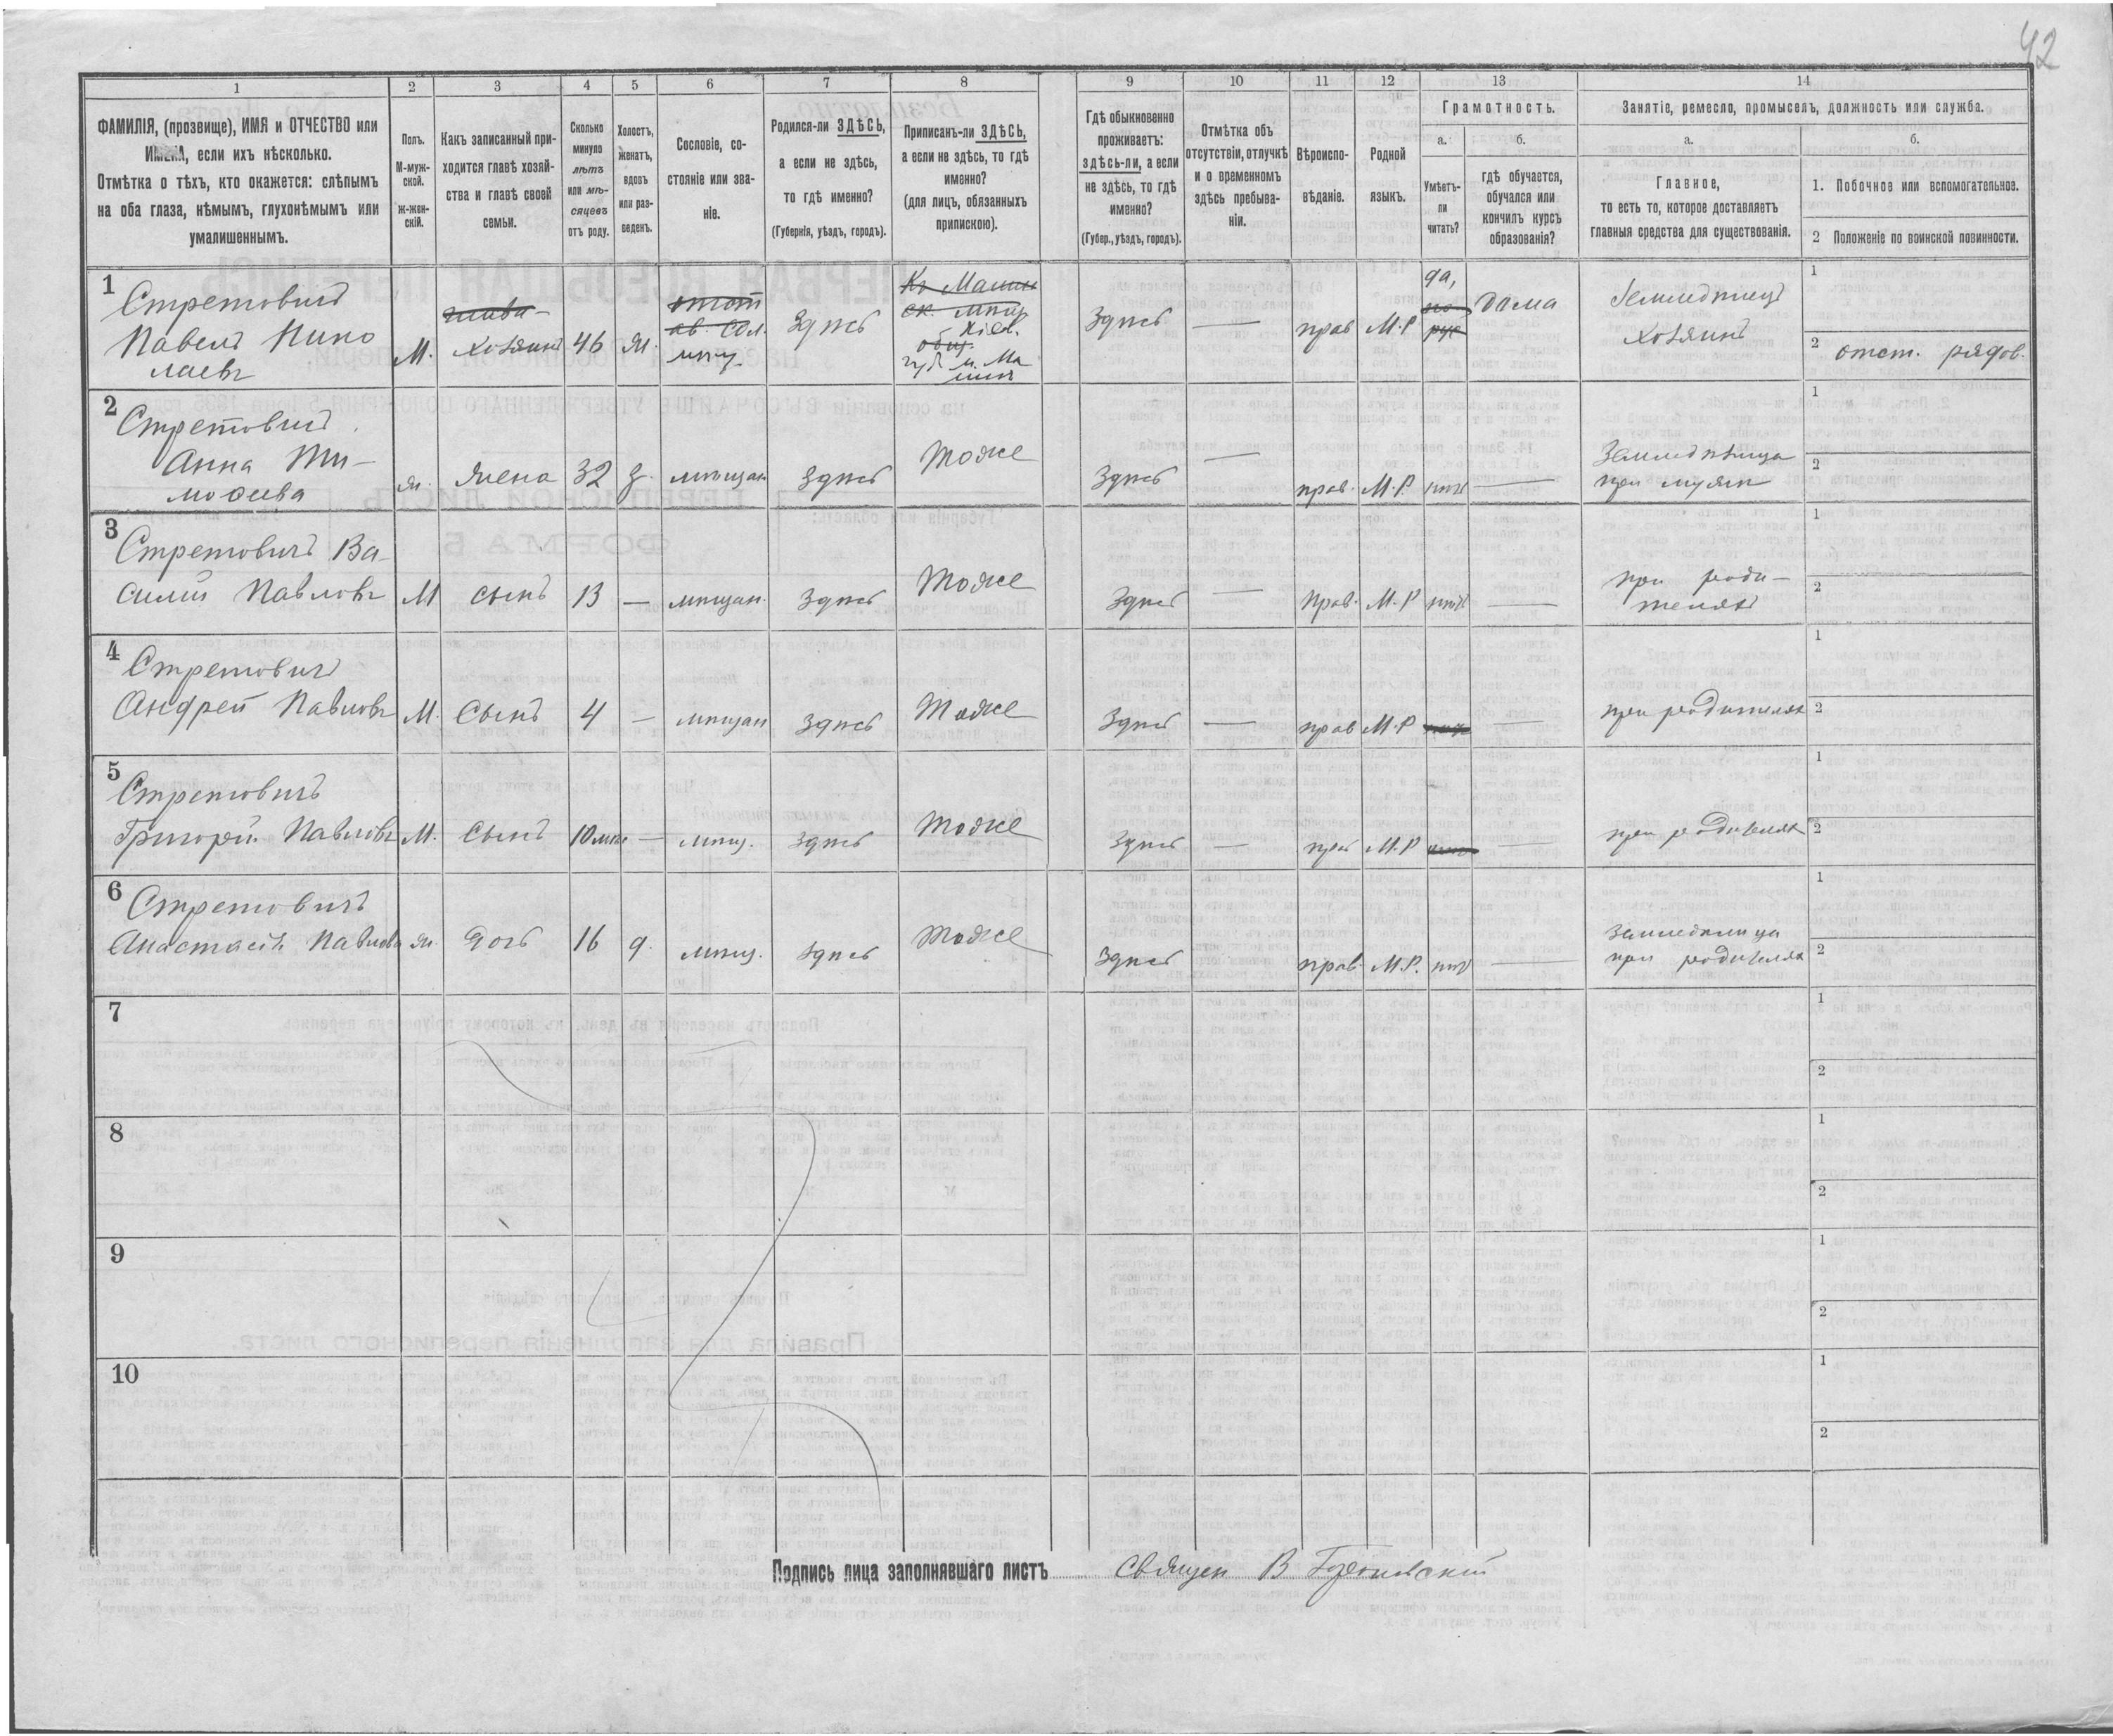 42
1 2 3 4 5 6 7 8 9 10 11 12 13 14
ФАМИЛІЯ, (прозвище), ИМЯ и ОТЧЕСТВО или
ИМЕНА, если ихъ нѣсколько.
Отмѣтка о тѣхъ, кто окажется: слѣпымъ
на оба глаза, нѣмымъ, глухонѣмымъ или
умалишеннымъ.
Полъ.
М-муж-
ской.
ж-жен-
скій.
Какъ записанный при-
ходится главѣ хозяй-
ства и главѣ своей
семьи.
Сколько
минуло
лѣтъ
или мѣ-
сяцевъ
отъ роду.
Холостъ,
женатъ,
вдовъ
или раз-
веденъ.
Сословіе, со-
стояніе или зва-
ніе.
Родился-ли ЗДѢСЬ,
а если не здѣсь,
то гдѣ именно?
(Губернія, уѣздъ, городъ).
Приписанъ-ли ЗДѢСЬ,
а если не здѣсь, то гдѣ
именно?
(для лицъ, обязанныхъ
припискою).
Гдѣ обыкновенно
проживаетъ:
здѣсь-ли, а если
не здѣсь, то гдѣ
именно?
(Губер., уѣздъ, городъ).
Отмѣтка объ
отсутствіи, отлучкѣ
и о временномъ
здѣсь пребыва-
ніи.
Вѣроиспо-
вѣданіе.
Родной
языкъ.
Грамотность.
а.
Умѣетъ-
ли
читать?
б.
гдѣ обучается,
обучался или
кончилъ курсъ
образованія?
Занятіе, ремесло, промыселъ, должность или служба.
а.
Главное,
то есть то, которое доставляетъ
главныя средства для существованія.
б.
1. Побочное или вспомогательное.
2 Положеніе по воинской повинности.
1
Стретовичъ
Павелъ Нико
лаевъ
М.
глава
хозяинъ
46
ж.
мѣщ.
здѣсь
Кіев.
губ. м. Ма
здѣсь
—
прав
М.Р
да,
дома
Земледѣлецъ
хозяинъ
1
2 отст. рядов.
2
Стретовичъ
Анна Ти-
моѳеева
ж.
жена
32
з.
мѣщан.
здѣсь
тоже
здѣсь
—
прав.
М.Р.
нѣтъ
—
Земледѣлица
при мужѣ
1
2
3
Стретовичъ Ва-
силій Павловъ
М
сынъ
13
—
мѣщан.
здѣсь
тоже
здѣсь
—
прав.
М.Р
нѣтъ
—
при роди-
теляхъ
1
2
4
Стретовичъ
Андрей Павловъ
М.
сынъ
4
—
мѣщан
здѣсь
тоже
здѣсь
—
прав
М.Р
—
при родителяхъ
1
2
5
Стретовичъ
Григорій Павловъ
М.
сынъ
10 мѣс
—
мѣщ.
здѣсь
тоже
здѣсь
—
прав
М.Р
—
при родителяхъ
1
2
6
Стретовичъ
Анастасія Павлова
ж.
дочь
16
д.
мѣщ.
здѣсь
тоже
здѣсь
прав.
М.Р.
нѣтъ
—
земледѣлица
при родителяхъ
1
2
7
1
2
8
1
2
9
1
2
10
1
2
Подпись лица заполнявшаго листъ Священ В